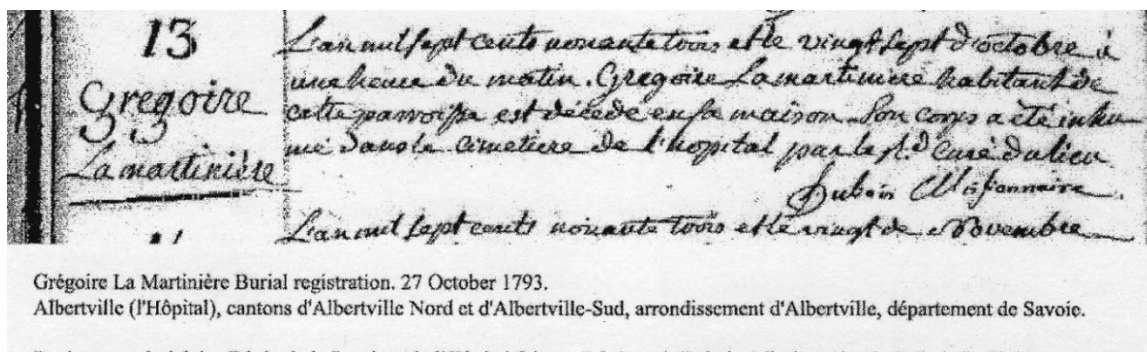 13
Gregoire
La martinière
L'an mil sept cents nonante trois et le vingt sept d'octobre à
une heure du matin. Gregoire La martiniere habitant de
cette parroisse est décédé en sa maison. Son corps a été inhu
mé dans le cimetiere de l'hopital par le Rd curé du lieu
Missionnaire
L'an mil sept cents nonante trois et le vingt de Novembre
Grégoire La Martinière Burial registration. 27 October 1793.
Albertville (l'Hôpital), cantons d'Albertville Nord et d'Albertville-Sud, arrondissement d'Albertville, département de Savoie.